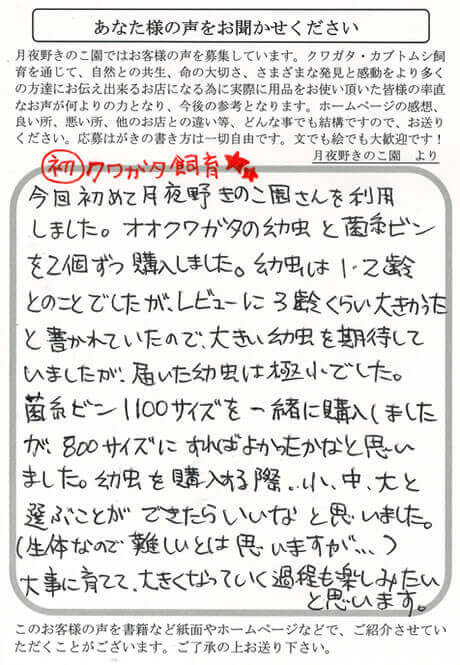 あなた様の声をお聞かせください
月夜野きのこ園ではお客様の声を募集しています。クワガタ・カブトムシ飼
育を通じて、自然との共生、命の大切さ、さまざまな発見と感動をより多く
の方達にお伝え出来るお店になる為に実際に用品をお使い頂いた皆様の率直
なお声が何よりの力となり、今後の参考となります。ホームページの感想、
良い所、悪い所、他のお店との違い等、どんな事でも結構ですので、お送り
ください。応募はがきの書き方は一切自由です。文でも絵でも大歓迎です!
月夜野きのこ園 より
初クワガタ飼育★★
今回初めて月夜野きのこ園さんを利用
しました。オオクワガタの幼虫と菌糸ビン
を2個ずつ購入しました。幼虫は1・2齢
とのことでしたが、レビューに3齢くらい大きかった
と書かれていたので、大きい幼虫を期待して
いましたが、届いた幼虫は極小でした。
菌糸ビン1100サイズを一緒に購入しました
が、800サイズにすればよかったかなと思い
ました。幼虫を購入する際、小、中、大と
選ぶことができたらいいなと思いました。
(生体なので難しいとは思いますが、、、)
大事に育てて、大きくなっていく過程も楽しみたい
と思います。
このお客様の声を書籍など紙面やホームページなどで、ご紹介させてい
ただくことがございます。ご了承の上お送り下さい。